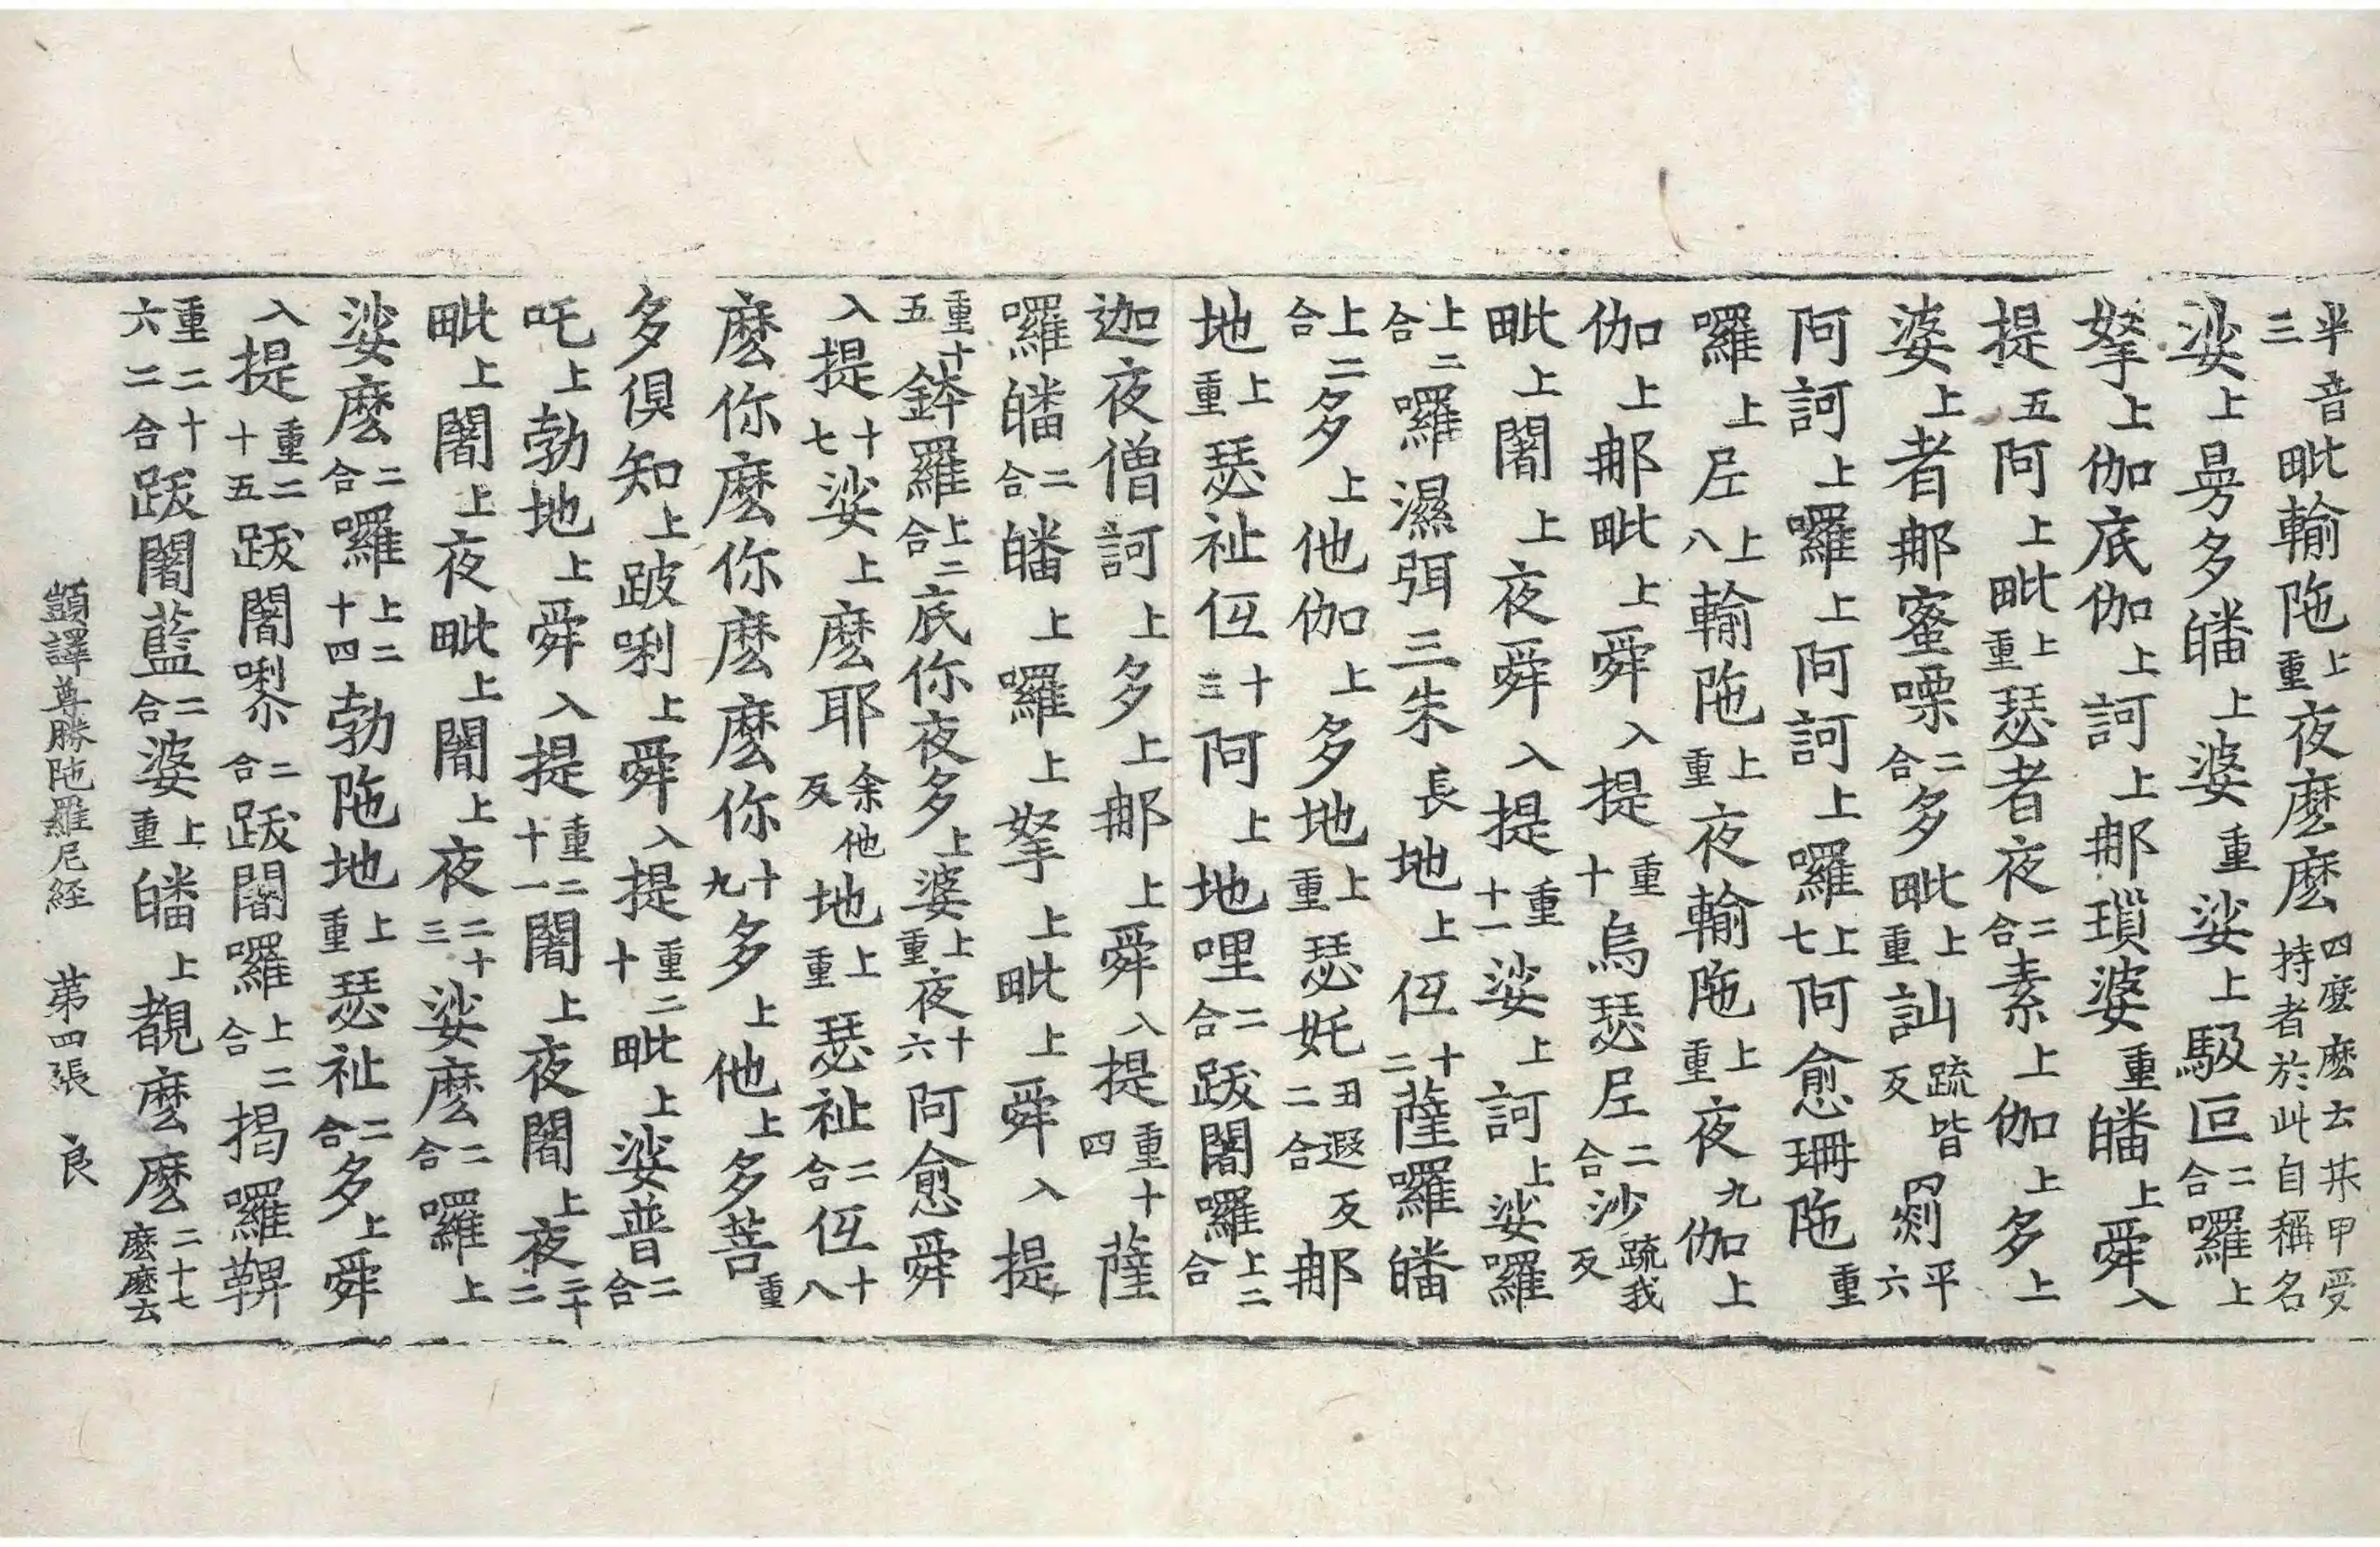 半音三毗輸陁上重夜麼麼四麼麼去某甲受持者於此自稱名
娑上曼多皤上婆重娑上馺叵二合囉上
拏上伽底伽上訶上那瑣婆重皤上舜入
提五阿上毗上重瑟者夜二合素上伽上多上
婆上者那蜜㗚二合多毗上重訕疏皆反罽平六
阿訶上囉上阿訶上囉上七阿愈珊陁重
囉上𡰱上八輸陁上重夜輸陁上重夜九伽上
伽上那毗上舜入提重十烏瑟𡰱二合沙疏我反
毗上闍上夜舜入提重十一娑上訶上娑囉
上二合囉濕弭三朱長地上伍十二薩囉皤
上二合多上他伽上多地上重瑟奼丑遐反二合那
地上重瑟祉伍十三阿上地哩二合跋闍囉上二合
迦夜僧訶上多上那上舜入提重十四薩
囉皤二合皤上囉上拏上毗上舜入提
重十五鉢羅上二合底你夜多上婆上重夜十六阿愈舜
入提十七娑上麼耶余他反地上重瑟祉二合伍十八
麼你麼你麼麼你十九多上他上多菩重
多俱知上跛唎上舜入提重二十毗上娑普二合
吒上勃地上舜入提重二十一闍上夜闍上夜二十二
毗上闍上夜毗上闍上夜二十三娑麼二合囉上
娑麼二合囉上二十四勃陁地上重瑟祉二合多上舜
入提重二十五跋闍㗚二合跋闍囉上二合揭囉鞞
重二十六二合跋闍藍二合婆上重皤上覩麼麼二十七麼麼去
顗譯尊勝陁羅尼経 第四張 良